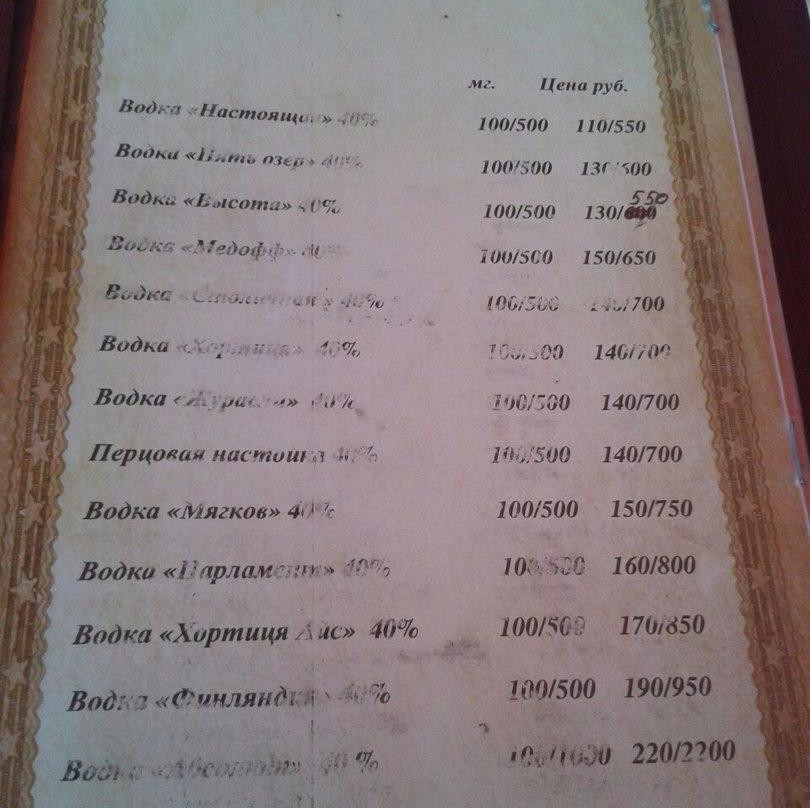 мг. Цена руб.
Водка «Настоящая» 40% 100/500 110/550
Водка «Пять озер» 40% 100/500 130/600
Водка «Высота» 40% 100/500 130/ 550
Водка «Медофф» 40% 100/500 150/650
Водка «Столичная» 40% 100/500 140/700
Водка «Хортиця» 40% 100/500 140/700
Водка «Журавли» 40% 100/500 140/700
Перцовая настойка 40% 100/500 140/700
Водка «Мягков» 40% 100/500 150/750
Водка «Парламент» 40% 100/500 160/800
Водка «Хортиця Айс» 40% 100/500 170/850
Водка «Финляндия» 40% 100/500 190/950
Водка «Абсолют» 40 % 100/1000 220/2200